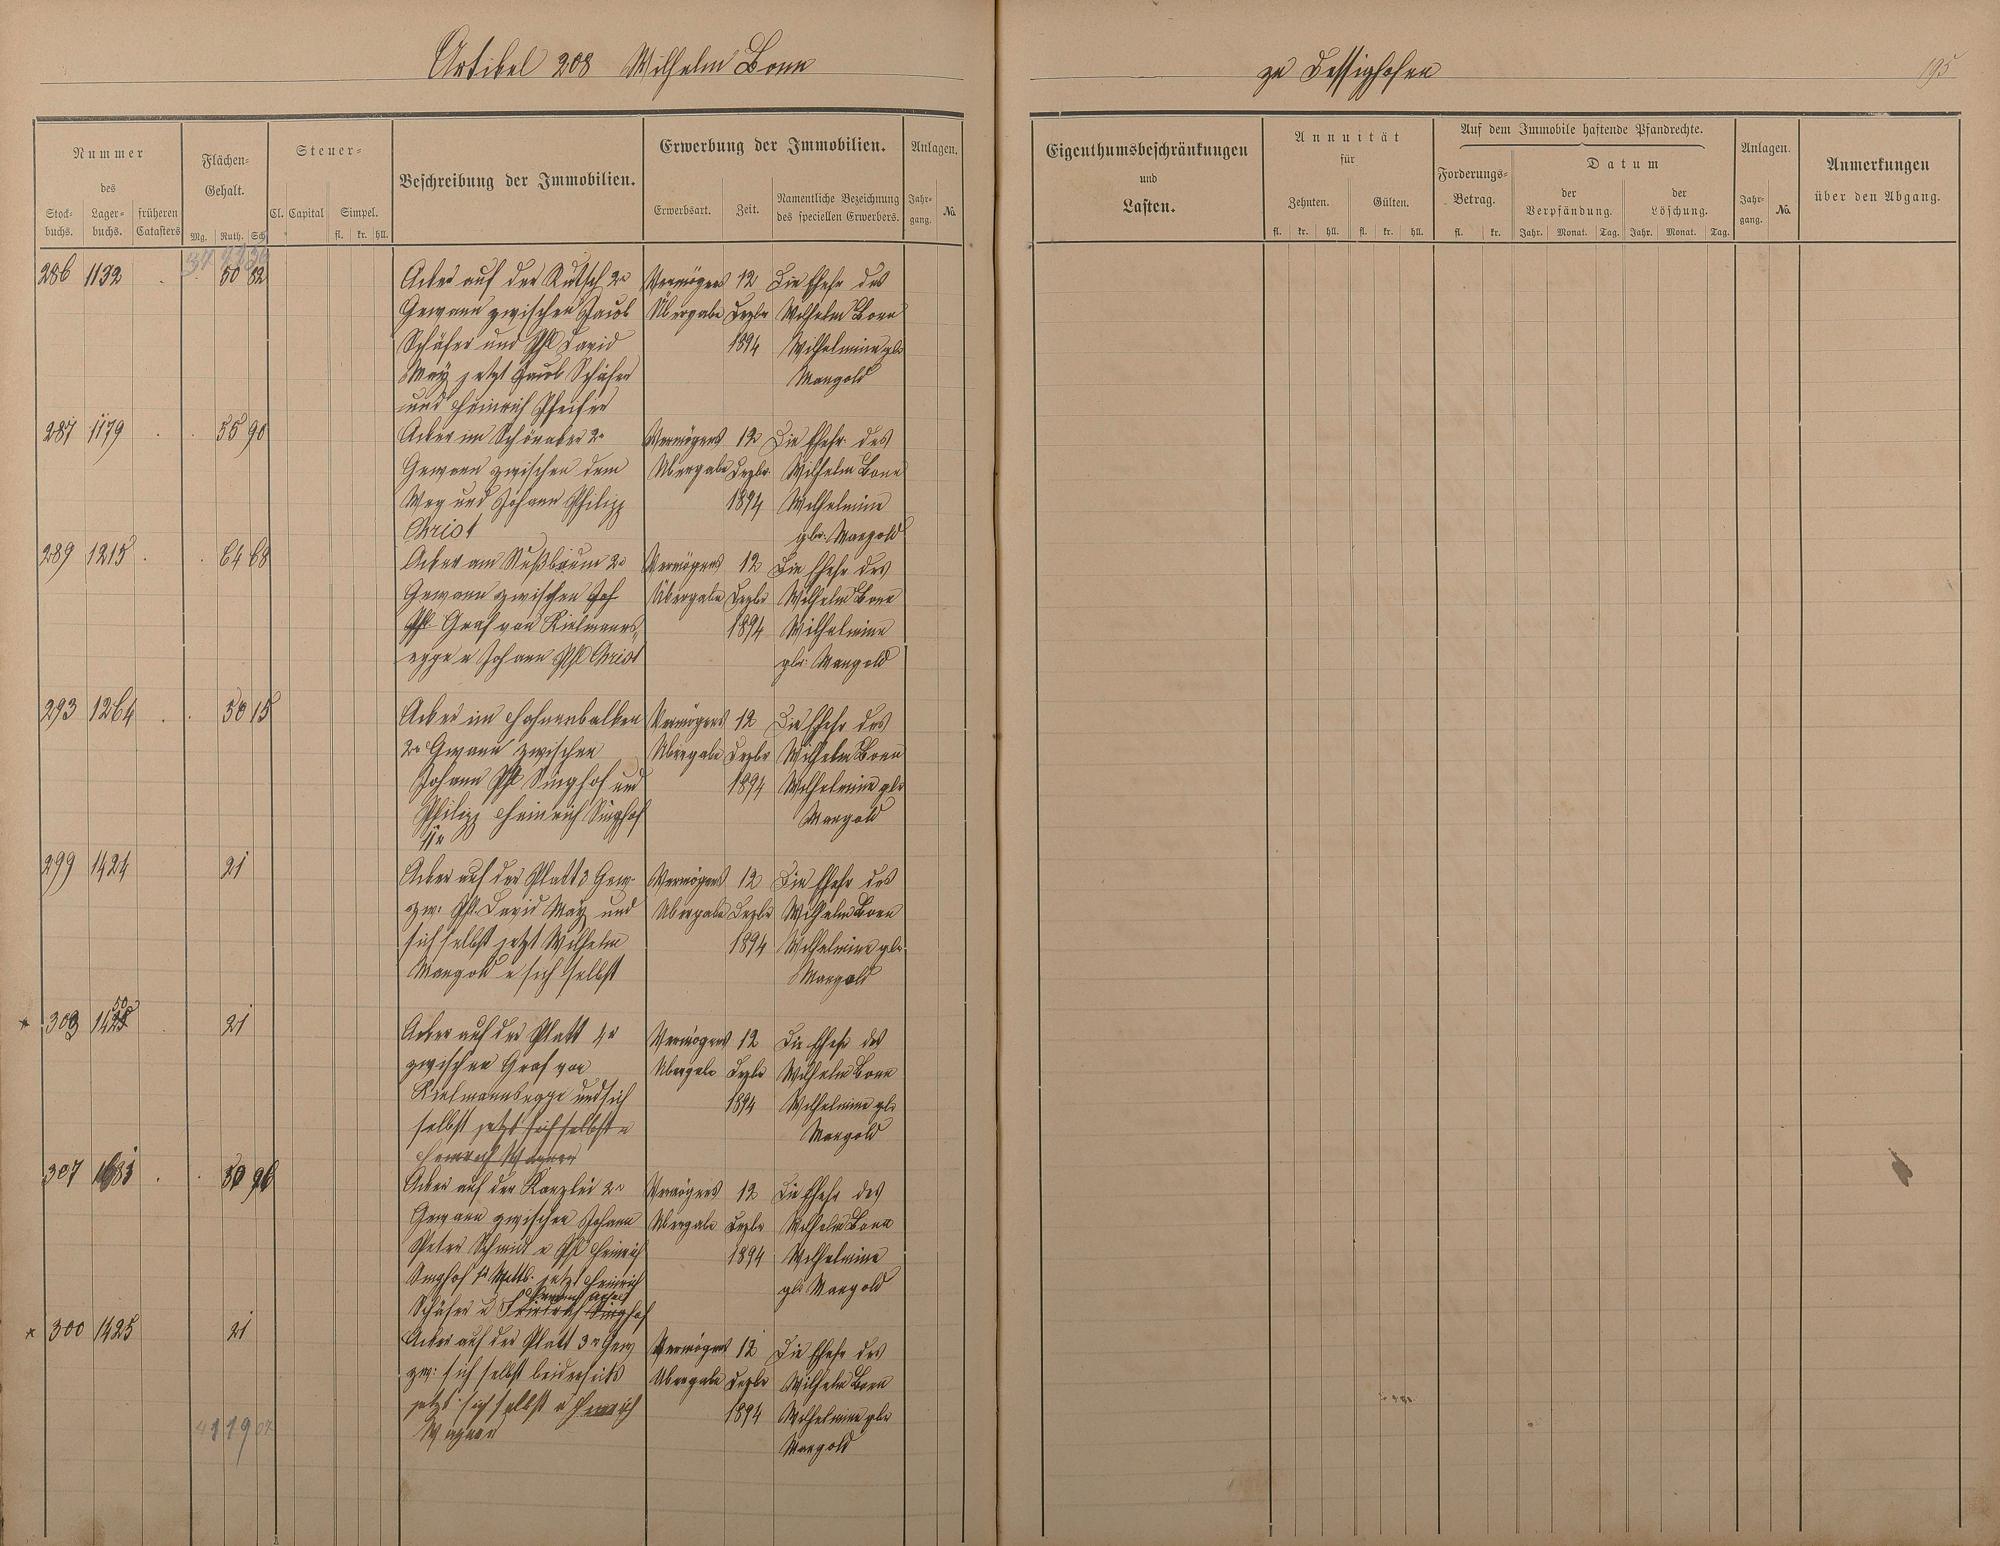 Artikel 208 Wilhelm Bonn
zu Dessighofen
195
Nummer
des
Stock-
buchs.
Lager-
buchs.
früheren
Catasters
Flächen-
Gehalt.
Mg. Ruth. Sch.
Steuer-
Cl. Capital Simpel.
fl. kr. hll.
Beschreibung der Immobilien.
Erwerbung der Immobilien.
Erwerbsart. Zeit.
Namentliche Bezeichnung
des speciellen Erwerbers.
Anlagen.
Jahr-
gang. No.
Eigenthumsbeschränkungen
und
Lasten.
Annuität
für
Zehnten. Gülten.
fl. kr. hll. fl. kr. hll.
Auf dem Immobile haftende Pfandrechte.
Forderungs-
Betrag.
fl. kr.
Datum
der
Verpfändung.
der
Löschung.
Jahr. Monat. Tag. Jahr. Monat. Tag.
Anlagen.
Jahr-
gang. No.
Anmerkungen
über den Abgang.
286 1132 50 82 Acker auf der Rutsch 2r Vermögens 12 Die Ehefr des
Gewann zwischen Jacob Übergabe Dezbr Wilhelm Bonn
Schäfer und Phl David 1894 Wilhelmine gb.
May jetzt Jacob Schäfer Mangold
und Heinrich Pfeifer
287 1179 55 90 Acker im Schönacker 2r Vermögens 12 Die Ehefr. des
Gewann zwischen dem Übergabe Dezbr. Wilhelm Bonn
Weg und Johann Philipp 1894 Wilhelmine
Christ gbr. Mangold
289 1215 64 68 Acker am Nußbaum 2r Vermögens 12 Die Ehefr des
Gewann zwischen Joh Übergabe Dezbr Wilhelm Bonn
Phl Graf von Kielmanns- 1894 Wilhelmine
egge u Johann Phl Christ gbr. Mangold
293 1264 50 15 Acker im Hahnenbalken Vermögens 12 Die Ehefr des
2r Gwann zwischen Übergabe Dezbr Wilhelm Bonn
Johann Phl Singhof und 1894 Wilhelmine gbr
Philipp Heinrich Singhof Mangold
IIr
299 1424 21 Acker auf der Platt 3 Gew. Vermögens 12 Die Ehefr des
zw. Phl. David May und Übergabe Dezbr Wilhelm Bonn
sich selbst jetzt Wilhelm 1894 Wilhelmine gbr.
Mangold u sich selbst Mangold
303 21 Acker auf der Platt 4r Vermögens 12 Die Ehefr des
zwischen Graf von Übergabe Dezbr Wilhelm Bonn
Kielmannsegge und sich 1894 Wilhelmine gb.
selbst jetzt sich selbst u Mangold
Heinrich Wagner
307 96 Acker auf der Kanzlei 2r Vermögens 12 Die Ehefr des
Gewann zwischen Johann Übergabe Dezbr Wilhelm Bonn
Peter Schmidt u Phl Heinrich 1894 Wilhelmine
Singhof jetzt Heinrich gb Mangold
Schäfer u Friedrich Singhof
300 1425 21 Acker auf der Platt 3r Gew Vermögens 12 Die Ehefr des
zw: sich selbst beiderseits Übergabe Dezbr Wilhelm Bonn
jetzt sich selbst u Heinrich 1894 Wilhelmine gbr
Wagner Mangold